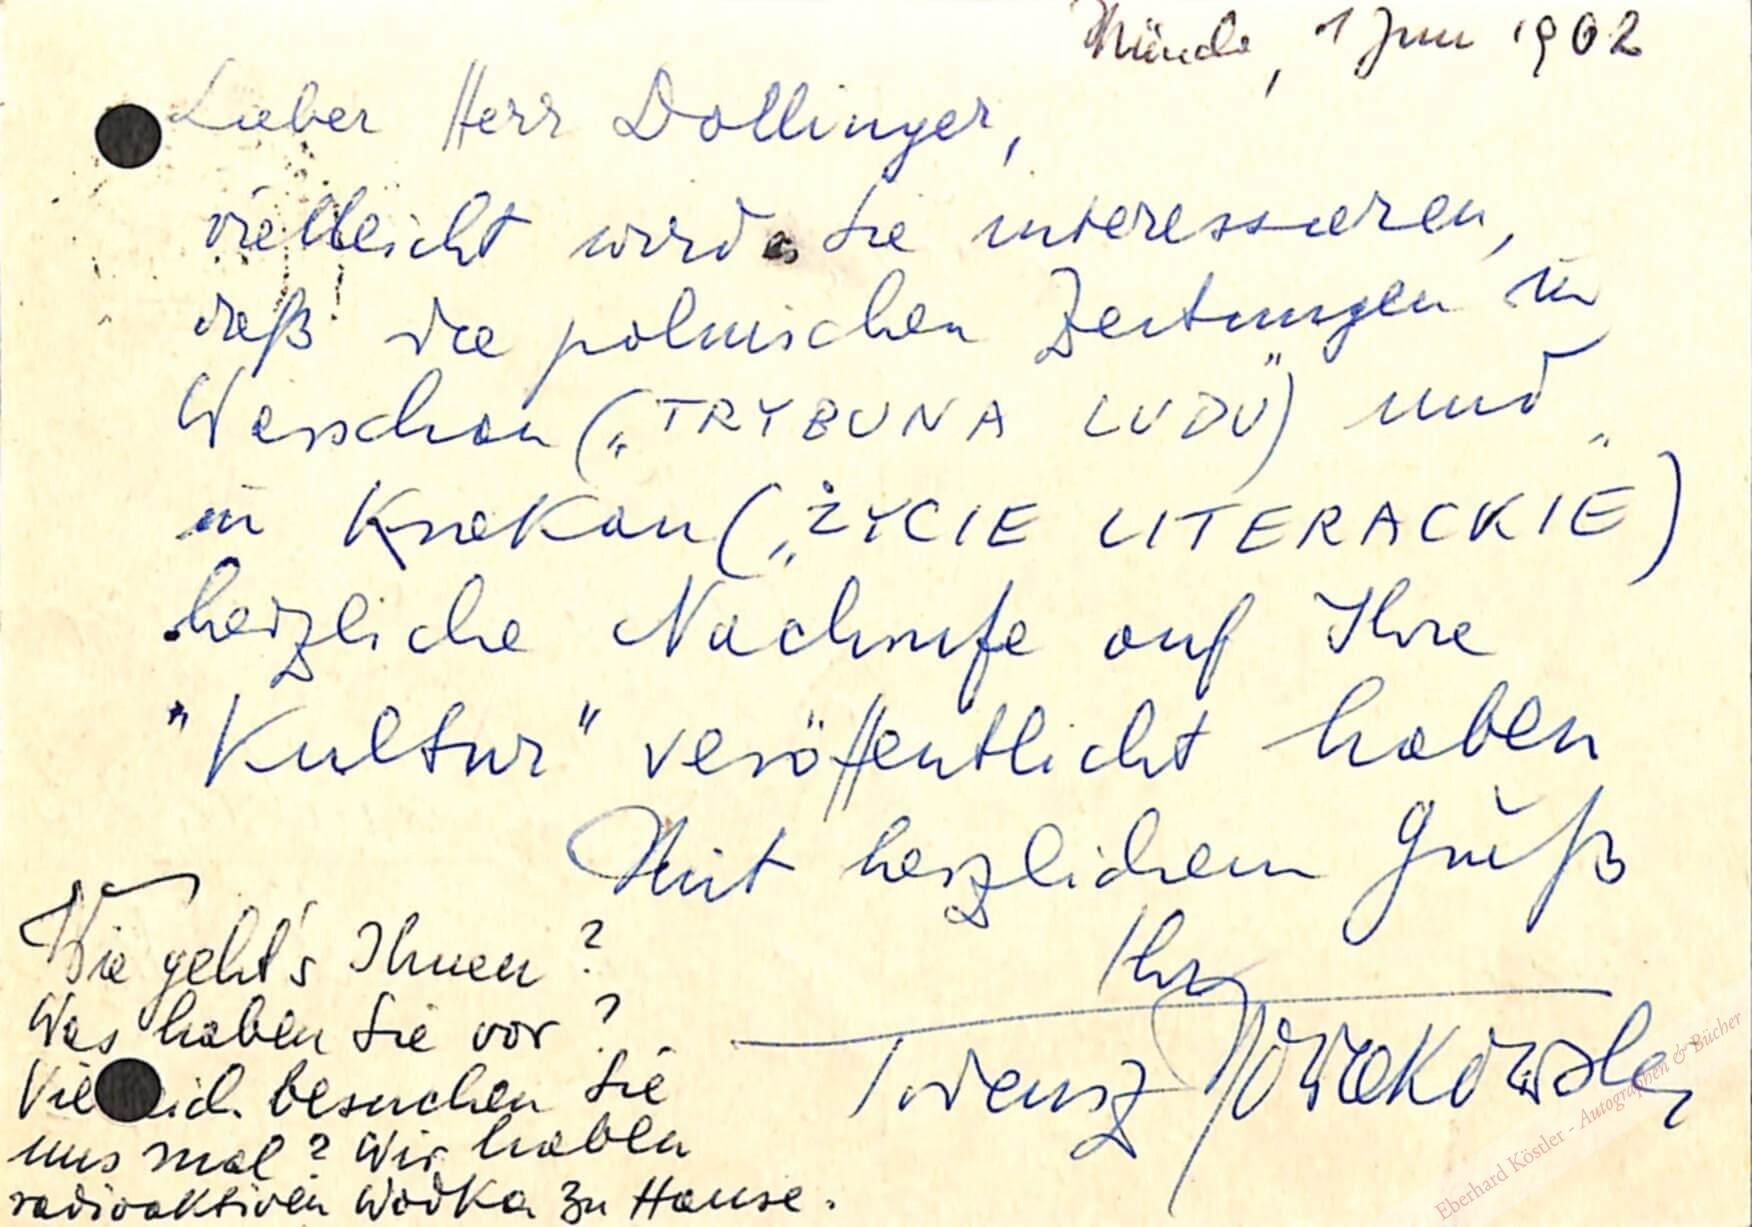 München, 1 Juni 1962
Lieber Herr Dollinger,
vielleicht wird es Sie interessieren,
daß die polnischen Zeitungen in
Warschau („TRYBUNA LUDU") und
in Krakau („ŻYCIE LITERACKIE")
herzliche Nachrufe auf Ihre
"Kultur" veröffentlicht haben
Mit herzlichem Gruß
Ihr
Tadeusz Nowakowski
Wie geht's Ihnen?
Was haben Sie vor?
Vielleich. besuchen Sie
uns mal? Wir haben
radioaktiven Wodka zu Hause.
Eberhard Köstler - Autographen & Bücher